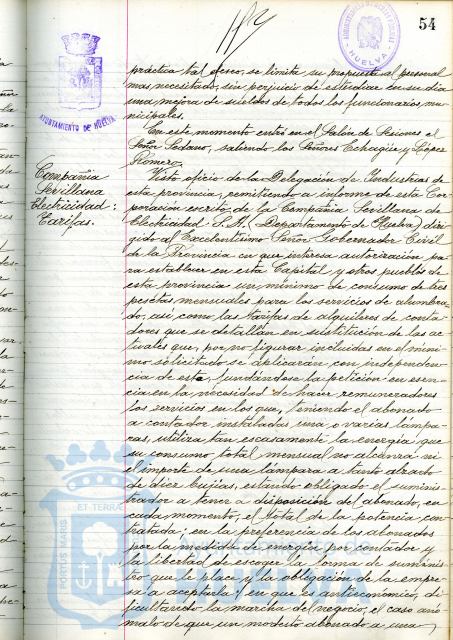 54
AYUNTAMIENTO DE HUELVA
HUELVA
práctica tal deseo, se limita su propuesta al personal
mas necesitado, sin perjuicio de estudiar en su dia
una mejora de sueldos de todos los funcionarios mu-
nicipales.
En este momento entró en el Salón de Sesiones el
Señor Sedano, saliendo los Señores Echagüe y López
Romero.
Compañia
Sevillana
Electricidad:
Tarifas.
Visto oficio de la Delegación de Industrias de
esta provincia, remitiendo a informe de esta Cor-
poración escrito de la Compañía Sevillana de
Electricidad S.A. (Departamento de Huelva) diri-
gido al Excelentísimo Señor Gobernador Civil
de la Provincia en que interesa autorización pa-
ra establecer en esta Capital y otros pueblos de
esta provincia un mínimo de consumo de tres
pesetas mensuales para los servicios de alumbra-
do, así como las tarifas de alquileres de conta-
dores que se detallan en sustitución de las ac-
tuales que, por no figurar incluidas en el míni-
mo solicitado se aplicarán con independen-
cia de este, fundándose la petición en esen-
cia en la necesidad de hacer remuneradores
los servicios en los que, teniendo el abonado
a contador instaladas una o varias lámpa-
ras, utiliza tan escasamente la energía que
su consumo total mensual no alcanza ni
el importe de una lámpara a tanto alzado
de diez bujías, estando obligado el suminis-
trador a tener a disposición del abonado, en
cada momento, el total de la potencia con-
tratada; en la preferencia de los abonados
por la medida de energía por contador y
la libertad de escoger la forma de suminis-
tro que le place y la obligación de la empre-
sa a aceptarla; en que es antieconómico, di-
ficultando la marcha del negocio, el caso anó-
malo de que un modesto abonado a una
PORTUS MARIS
ET TERRAE
Ayuntamiento de
HUELVA